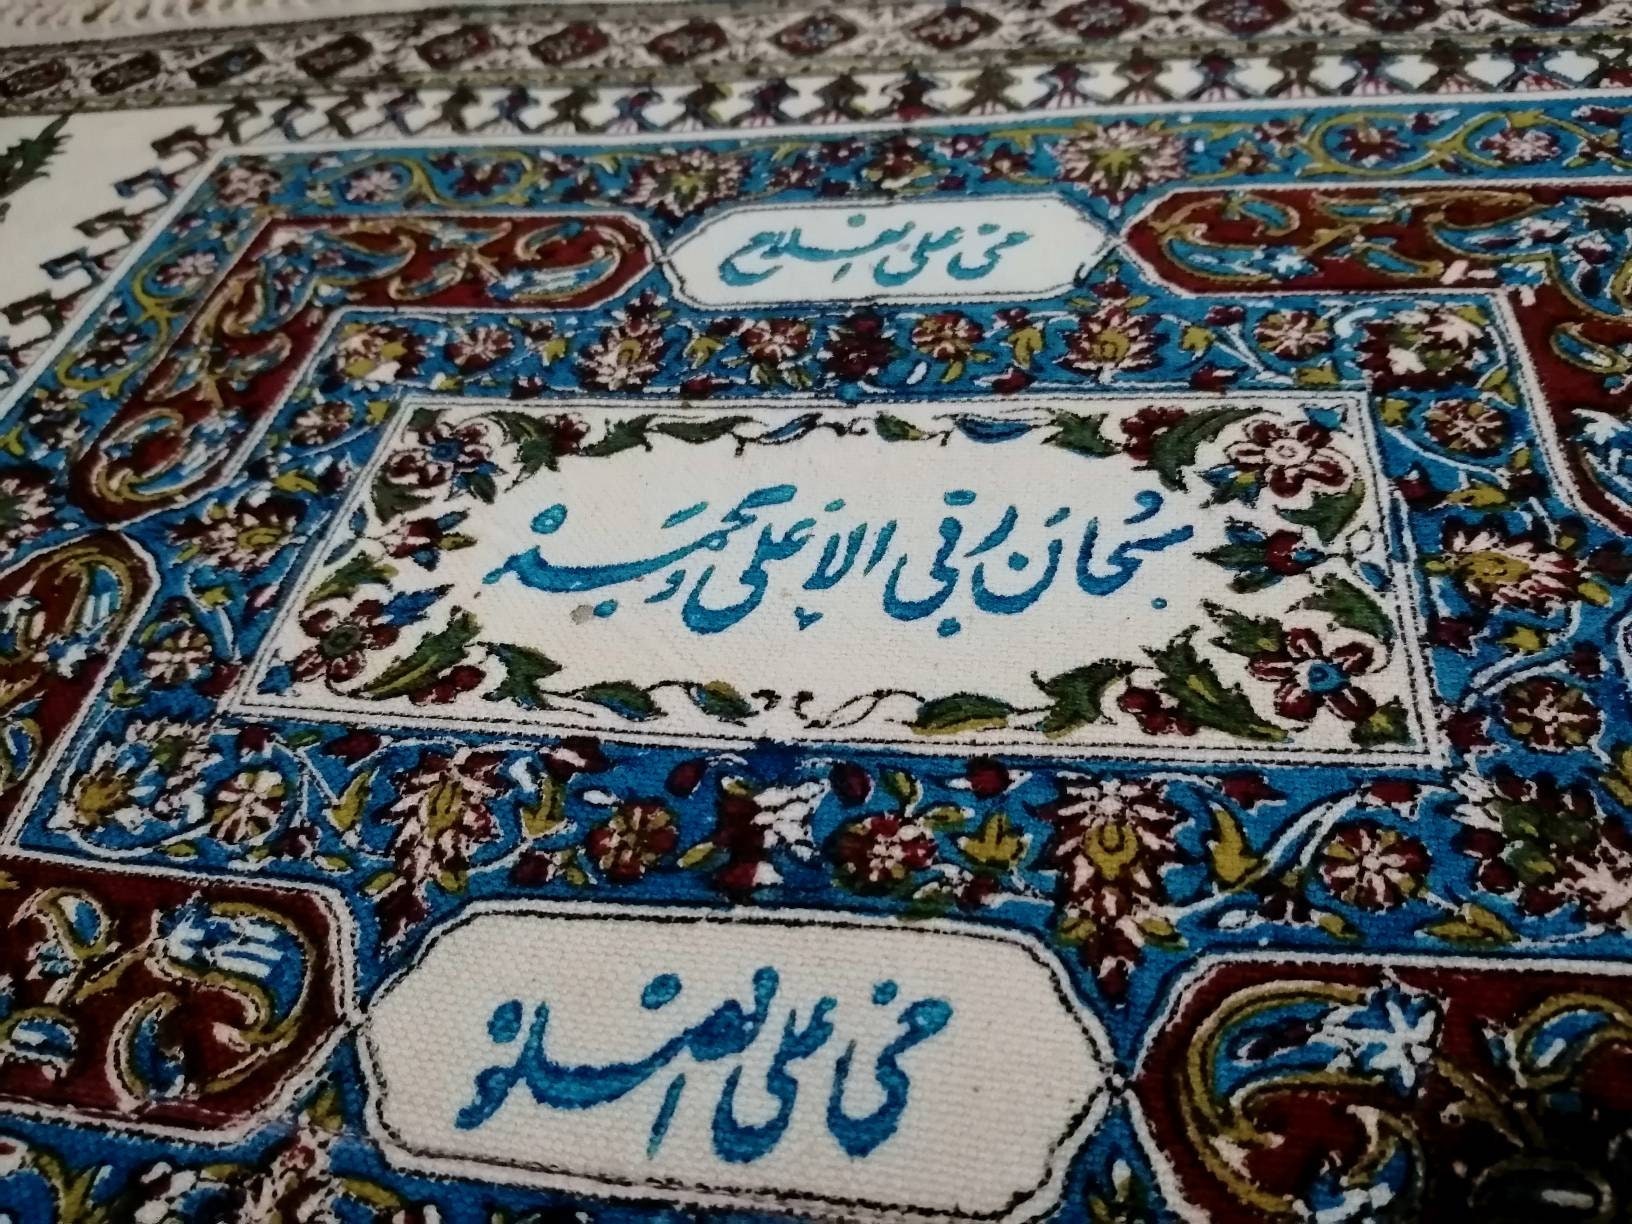 حی علی الفلاح
سُبحانَ رَبّی الاَعلی وَبِحَمدِه
حی علی الصلوة